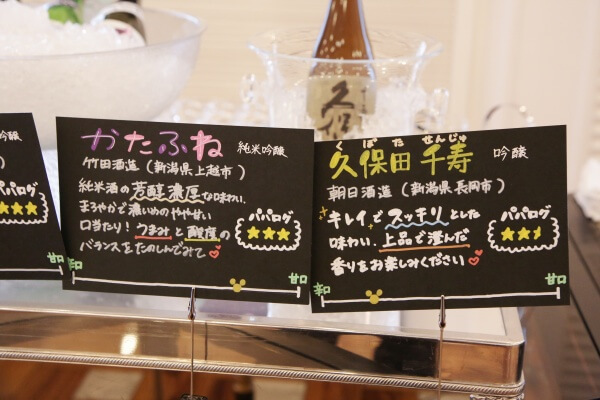 かたふね 純米吟醸
竹田酒造（新潟県上越市）
純米酒の芳醇濃厚な味わい.
まろやかで濃いめのややせい
口当たり！うまみと酸度の
バランスをたのしんでみて
パパログ
★★★
辛
甘口
くぼた せんじゅ
久保田 千寿 吟醸
朝日酒造（新潟県長岡市）
キレイでスッキリとした
味わい.上品で澄んだ
香りをお楽しみください
パパログ
★★
辛
甘口
久保
ログ
★★★
甘